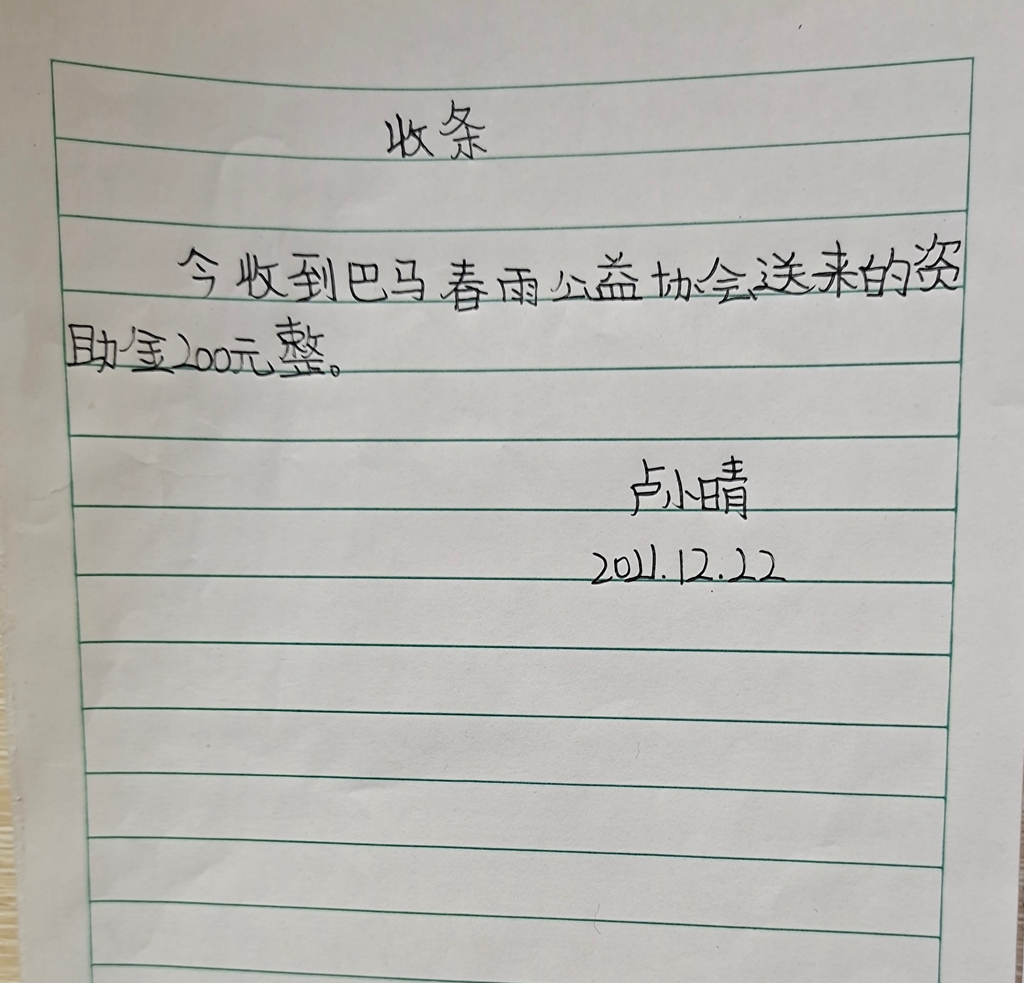 收条
今收到巴马春雨公益协会送来的资
助金200元整。
卢小晴
2021.12.22